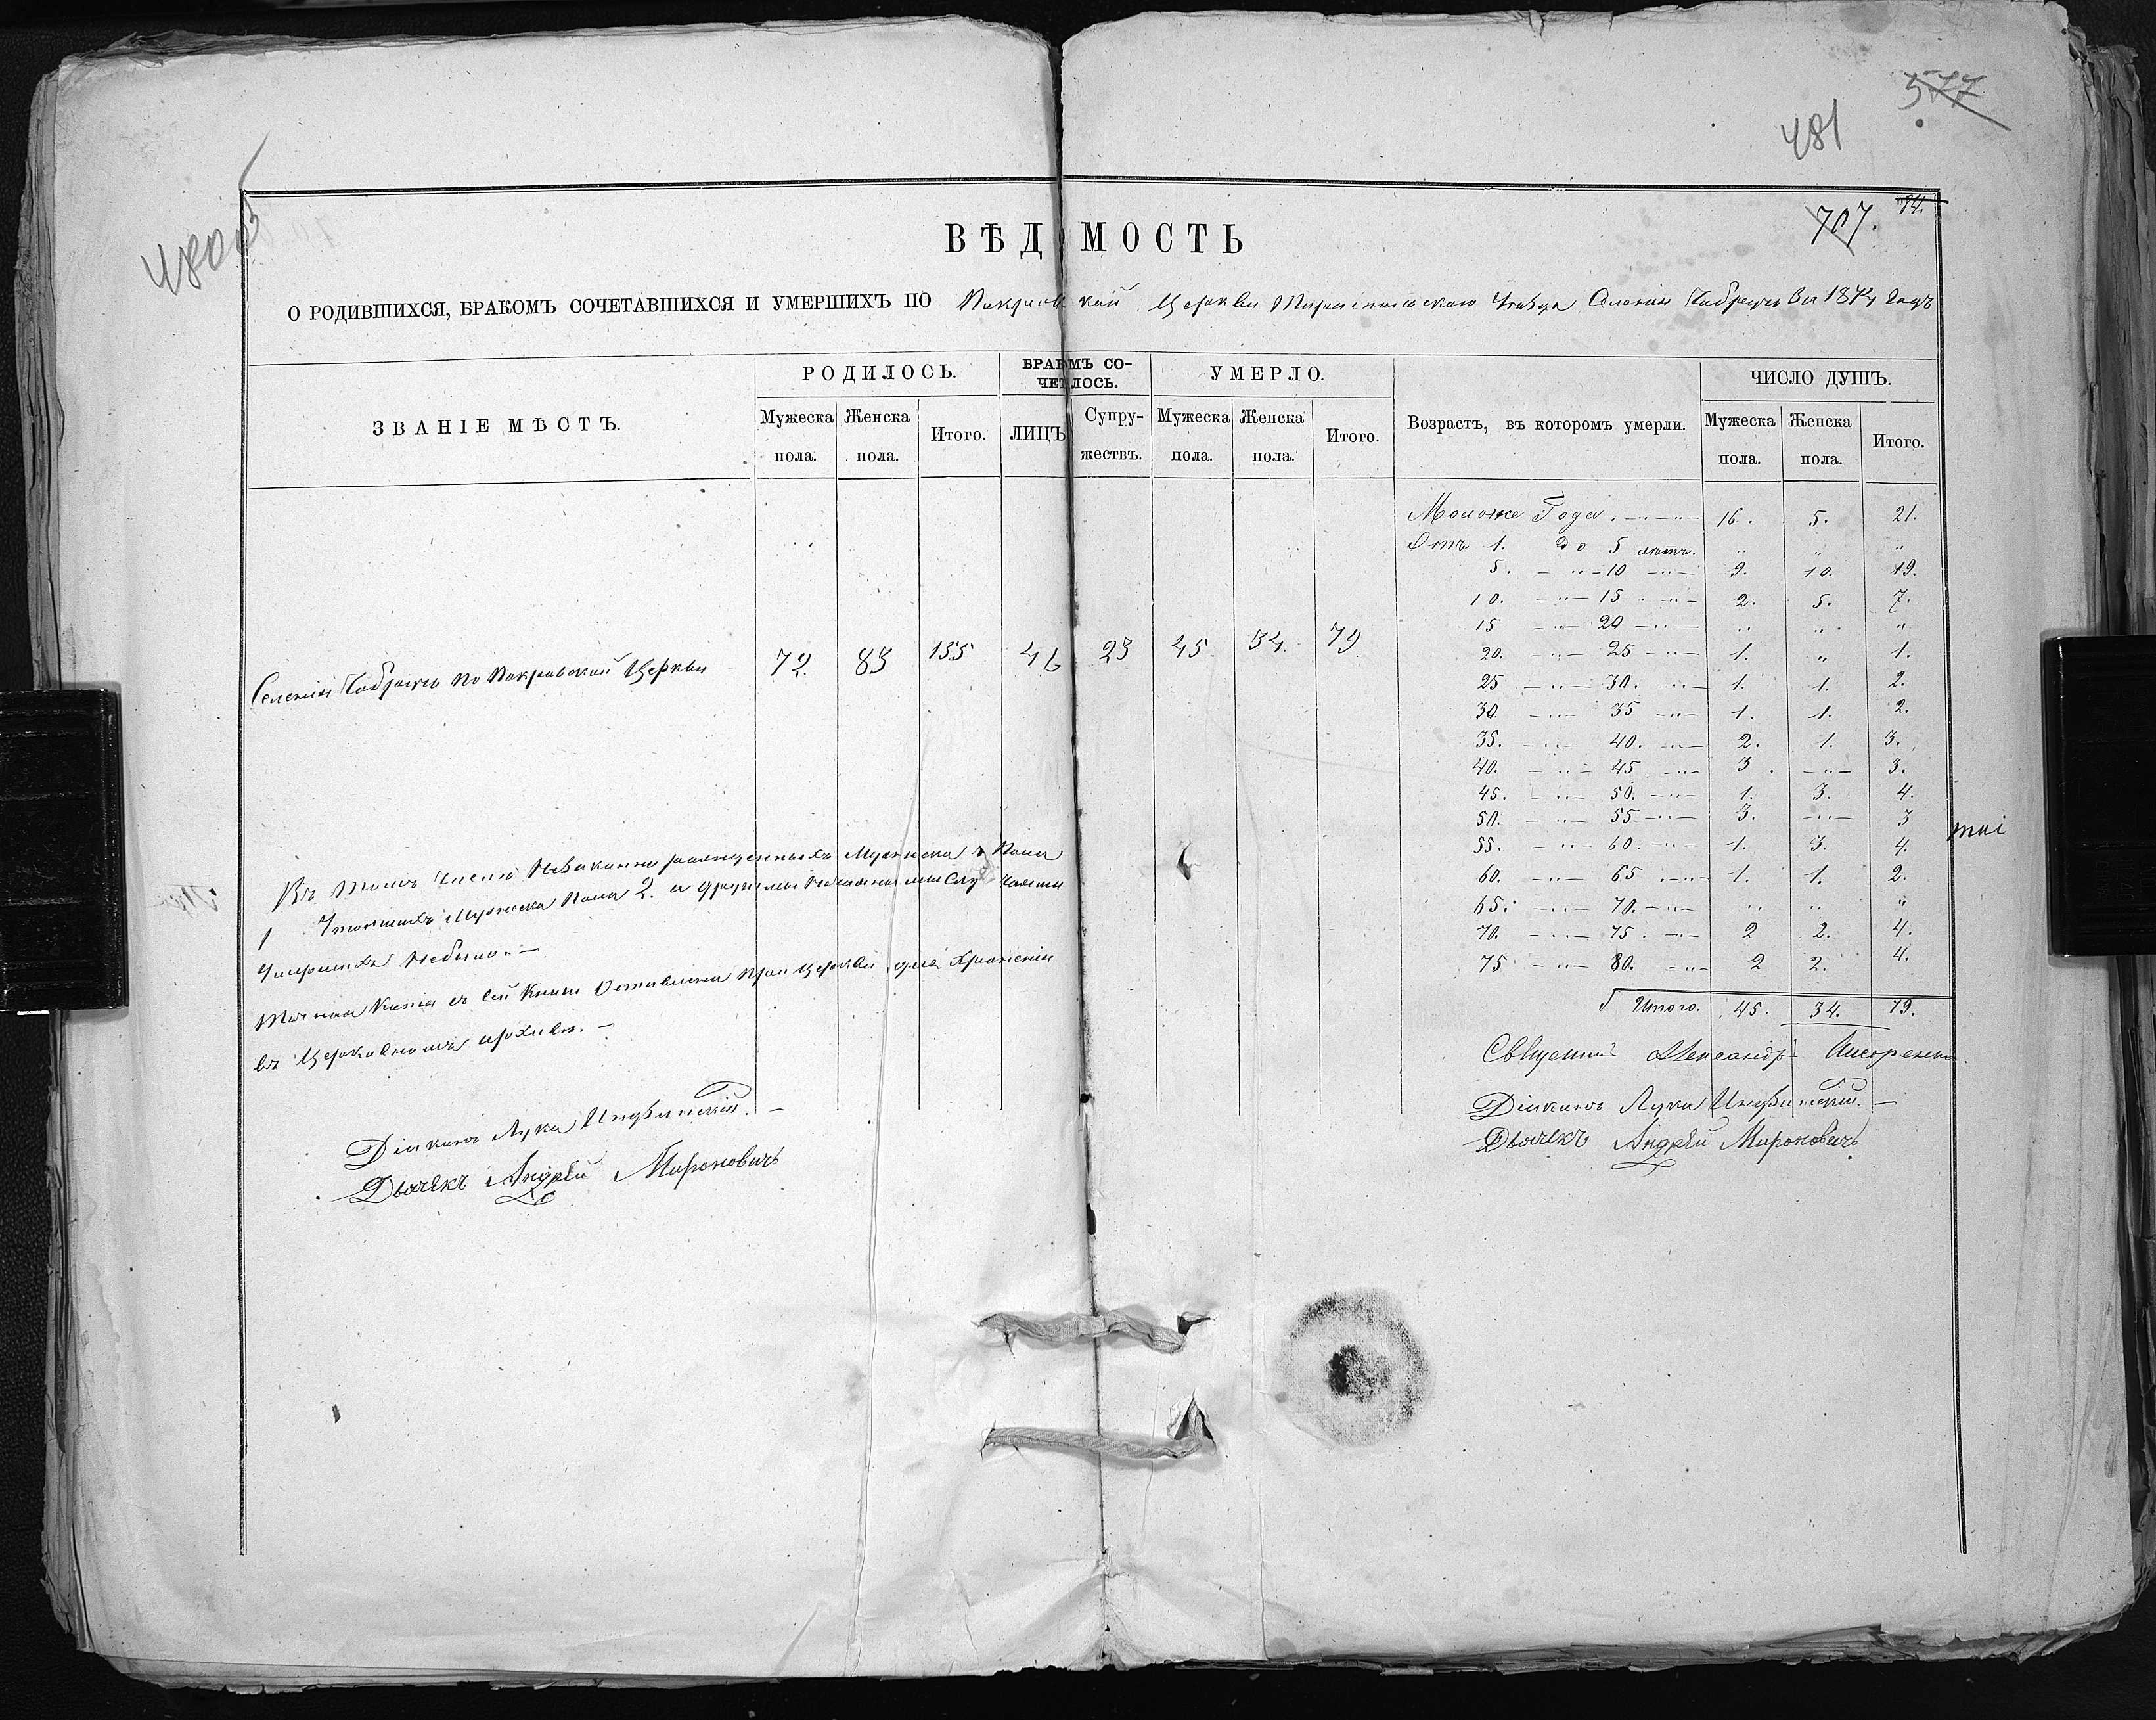 577
481
480об
707. 14.
ВѢДОМОСТЬ
О РОДИВШИХСЯ, БРАКОМЪ СОЧЕТАВШИХСЯ И УМЕРШИХЪ ПО Покровской Церкви Тираспольскаго Уѣзда Селенія Чобручь за 1874 Годъ
ЗВАНІЕ МѢСТЪ. РОДИЛОСЬ. БРАКОМЪ СОЧЕТЛОСЬ. УМЕРЛО. Возрастъ, въ которомъ умерли. ЧИСЛО ДУШЪ.
Мужеска пола. Женска пола. Итого. ЛИЦЪ Супружествъ. Мужеска пола. Женска пола. Итого. Мужеска пола. Женска пола. Итого.
Селенія Чобручь по Покровской Церкви 72. 83 155 46 23 45. 34. 79
Моложе Года. 16. 5. 21.
Отъ 1. до 5 лѣтъ. „ „ „
5. — „ — 10 — „ — 9. 10. 19.
10. — „ — 15 — „ — 2. 5. 7.
15 — „ — 20 — „ — „ „ „
20. — „ — 25 — „ — 1. „ 1.
25 — „ — 30. — „ — 1. 1. 2.
30. — „ — 35 — „ — 1. 1. 2.
35. — „ — 40. — „ — 2. 1. 3.
40. — „ — 45 — „ — 3. — „ — 3.
45. — „ — 50. — „ — 1. 3. 4.
50. — „ — 55 — „ — 3. — „ — 3
55. — „ — 60. — „ — 1. 3. 4.
60. — „ — 65 — „ — 1. 1. 2.
65. — „ — 70. — „ — „ „ „
70. — „ — 75. — „ — 2 2. 4.
75 — „ — 80. — „ — 2 2. 4.
Итого. 45. 34. 79.
Въ томъ числѣ Незаконно рожденныхъ Мужеска Пола
1 Утопшихъ Мужеска Пола 2. а другими случаями
Умершихъ Небыло. —
Точная Копія съ сей Книги Оставлена при Церкви для Храненія
въ Церковномъ архивѣ. —
Діаконъ Лука
Дьячекъ Андрѣй Мироновичъ
Священникъ Александръ
Діаконъ Лука
Дьячекъ Андрѣй Мироновичъ